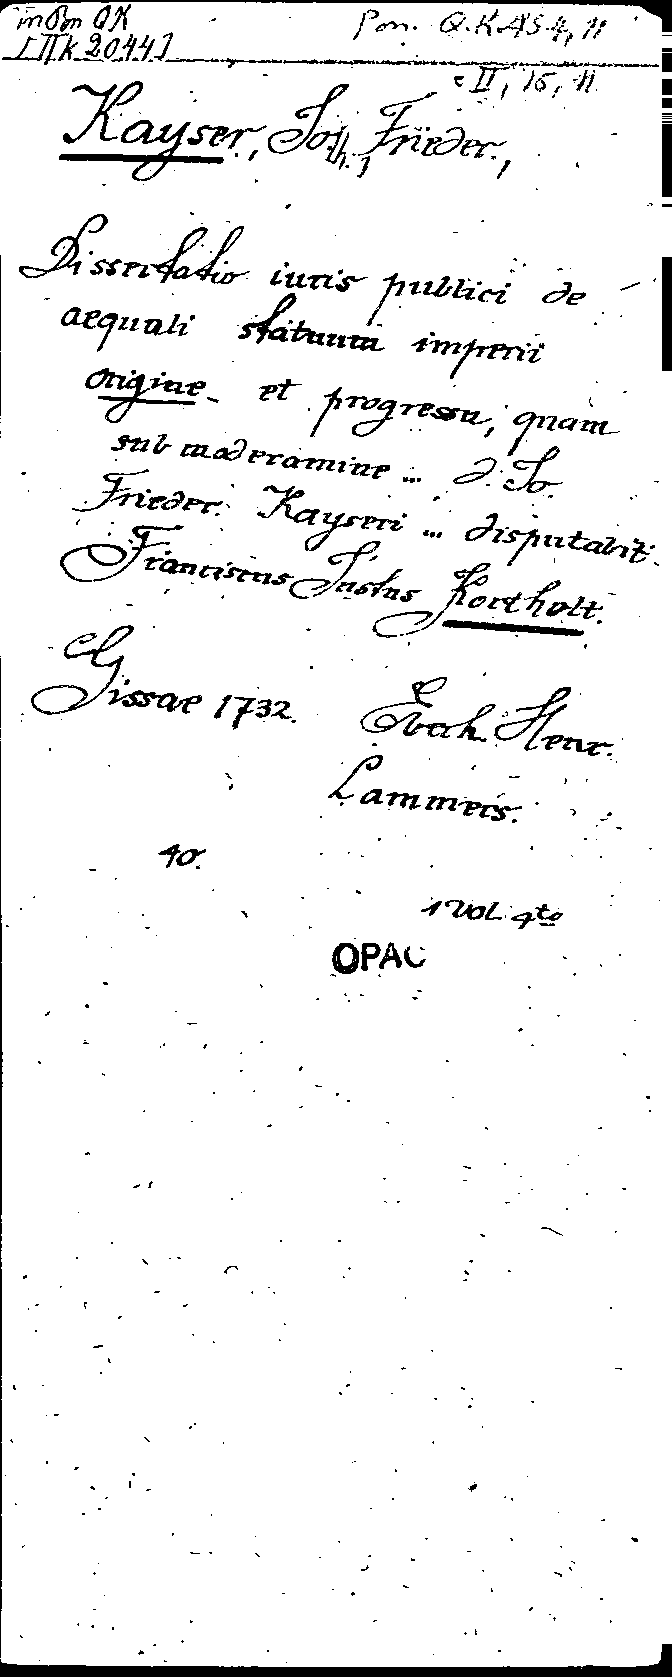 in Pon QK
[IIk 2044]
Pon. QKAS 4, 11
c II, 15, 11
Kayser, Joh., Frieder.,
Dissertatio iuris publici de
aequali statuum imperii
origine et progressu, quam
sub moderamine ... d. Jo.
Frieder. Kayseri ... disputabit
Franciscus Justus Kortholt.
Gissae 1732. Eberh. Henr.
Lammers.
40.
1 Vol 4to
OPAC